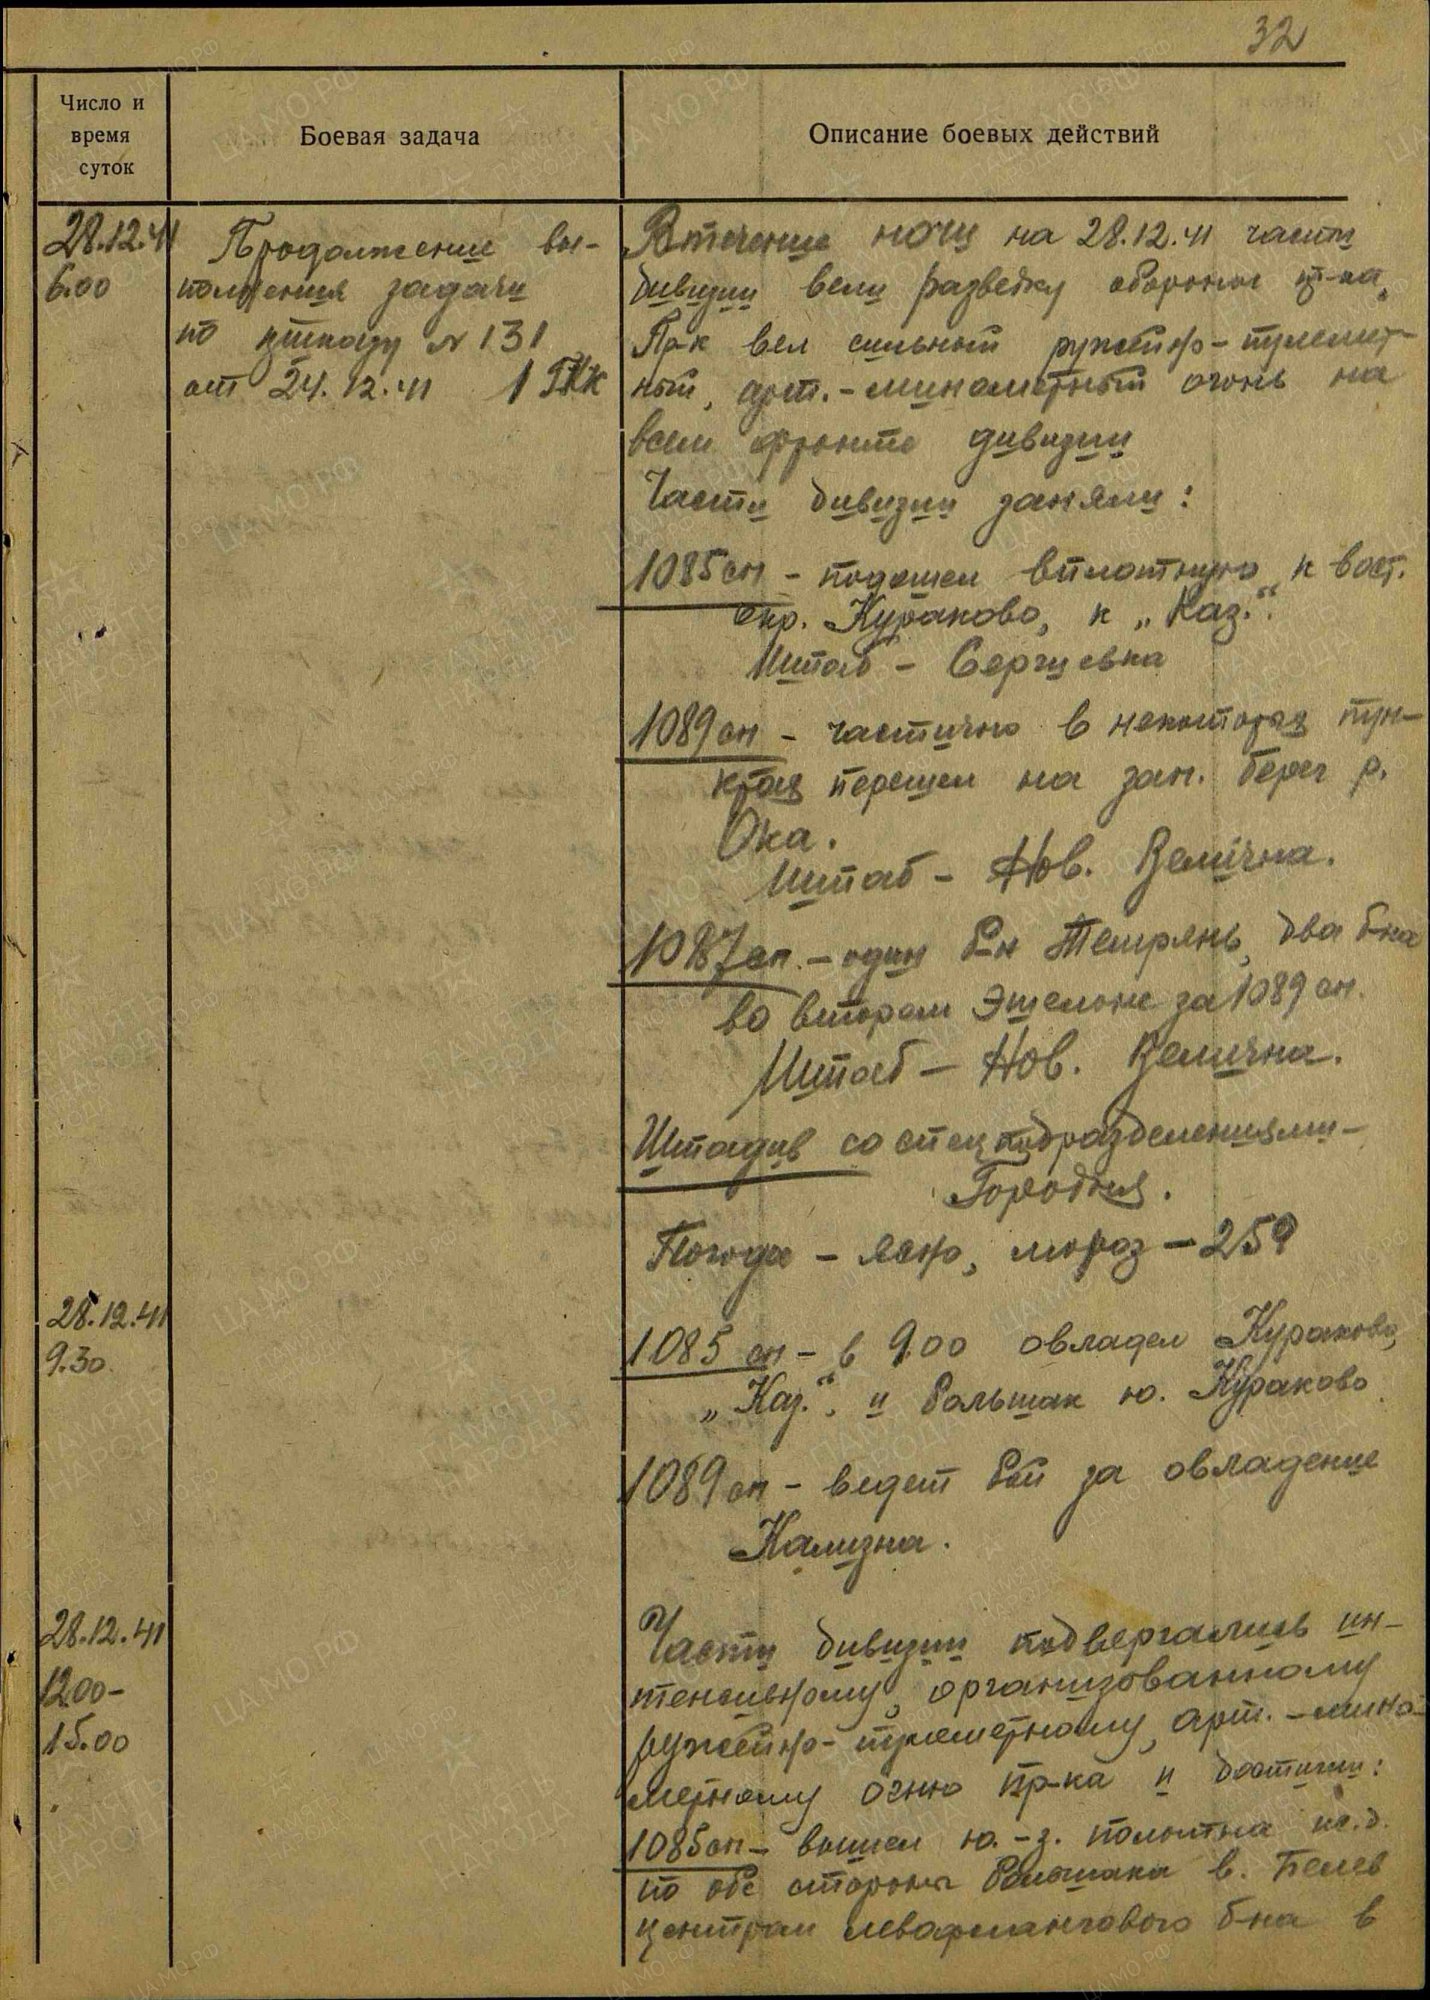 32
Число и
время
суток
Боевая задача
Описание боевых действий
28.12.41
6.00
Продолжение вы-
полнения задачи
по приказу № 131
от 24.12.41 1 ГКК
Втечение ночи на 28.12.41 части
дивизии вели разведку обороны пр-ка,
Пр-к вел сильный ружейно-пулемет-
ный, арт.-минометный огонь на
всем фронте дивизии
Части дивизии заняли:
1085 сп - подошел вплотную к вост.
окр. Кураково, к „Каз.".
Штаб - Сергиевка
1089 сп - частично в некоторых пун-
ктах перешел на зап. берег р.
Ока.
Штаб - Нов. Велична.
1087 сп. - один б-н Темрянь, два б-на
во втором эшелоне за 1089 сп.
Штаб - Нов. Велична.
Штадив со спецподразделениями -
Городня.
Погода - ясно, мороз - 25°
28.12.41
9.30
1085 сп - в 9.00 овладел Кураково,
„Каз.", и большак ю. Кураково
1089 сп - ведет бой за овладение
Кализна.
28.12.41
12.00-
15.00
Части дивизии подвергались ин-
тенсивному, организованному
ружейно-пулеметному, арт.-мино-
метному огню пр-ка и достигли:
1085 сп - вышел ю.-з. полотна ж.д.
по обе стороны большака в. Белев
центром левофлангового б-на в